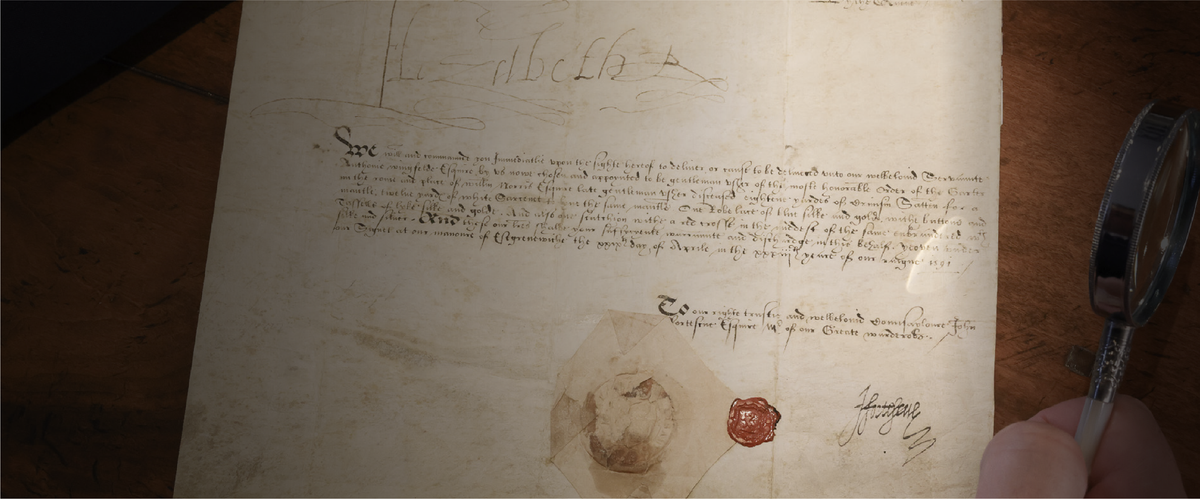 Elizabeth R
We will and commaunde you Immediatlie upon the sight hereof to deliver or cause to be delivered unto our welbeloved Servaunte
Anthonie wingfelde Esquire by us nowe chosen and appointed to be gentleman vsher of the most honorable Order of the Garter
in the rome and place of willm Norris Esquire late gentleman vsher discessed eightene yardes of Crimsin Satten for a
mantle, twelve yardes of white Sarcenet the same mantle One Robe lace of blue silke and golde, withe buttons and
Tassels of like silke and golde. And also one scutchion withe a red crosse in the middest of the same enbrodered
silke and silver. And these our lres shalbe your sufficyente warraunte and dischardge in this behalf. yeoven under
our Signet at our mannor of the day of Aprile in the yeare of our raigne 1591
To our right trustie and welbeloved John
Fortescue Esquire Mr of our Greate warderobe.